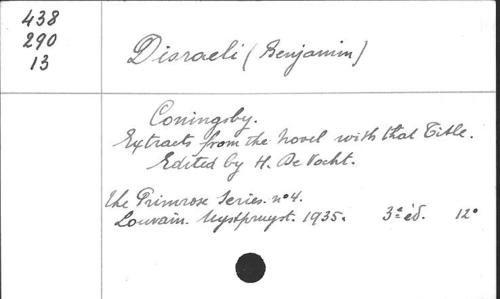 438
290
13
Disraeli (Benjamin)
Coningsby.
Extracts from the novel with that Title.
Edited by H. De Vocht.
The Primrose Series. nº 4.
Louvain. Uystpruyst. 1935. 3ª éd. 12º